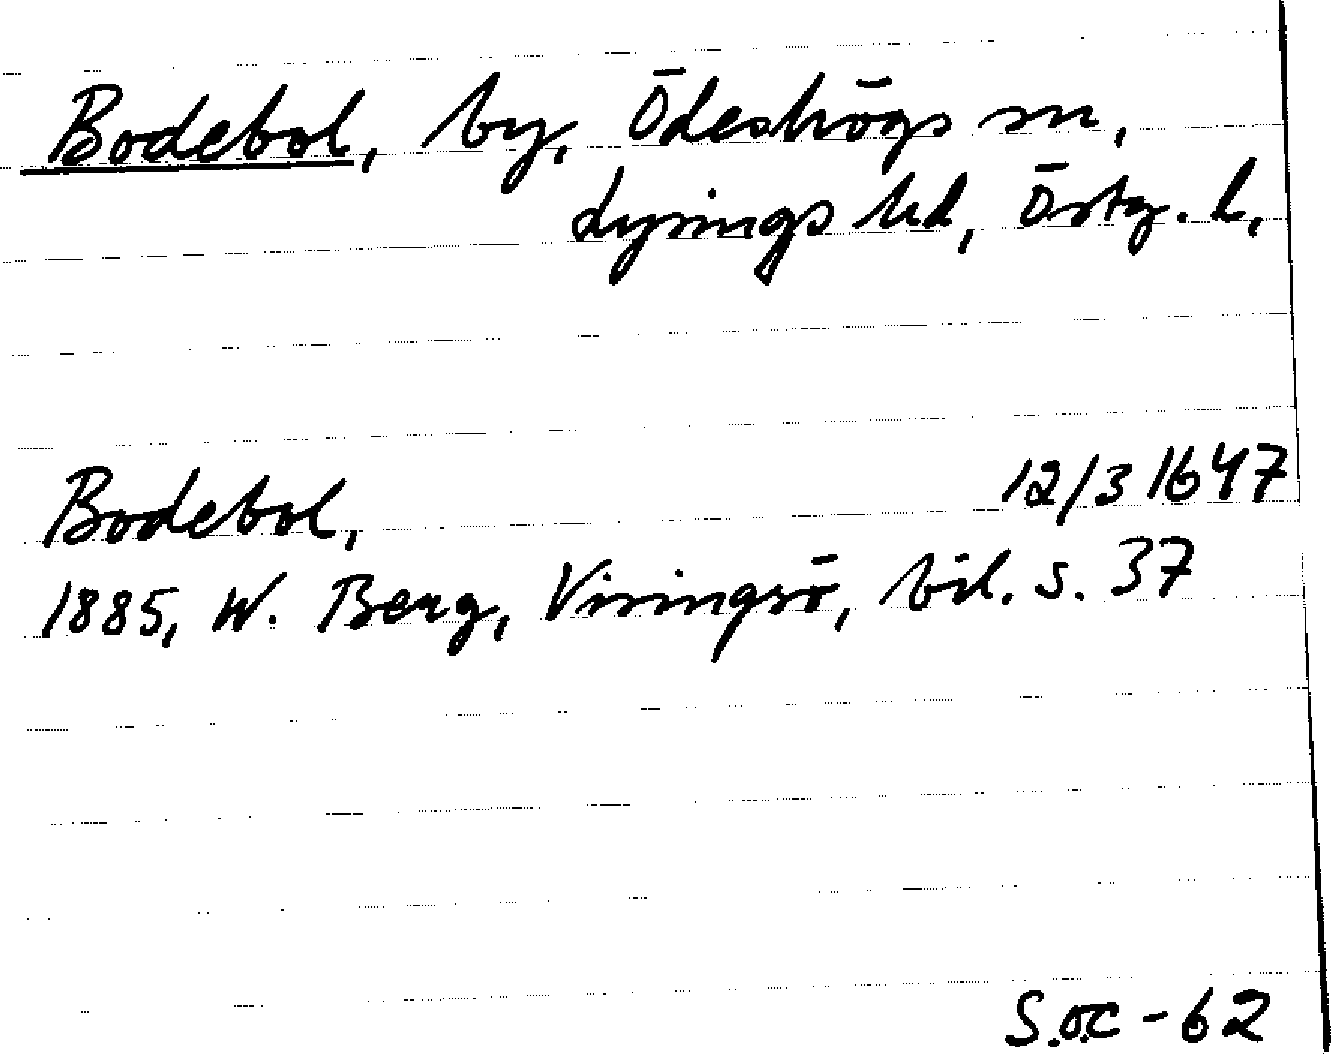 Bodebol, by, Ödeshögs sn,
Lysings hd, Östg. l,
Bodebol, 12/3 1647
1885, W. Berg, Visingsö, bil. s. 37
S.O.C - 62